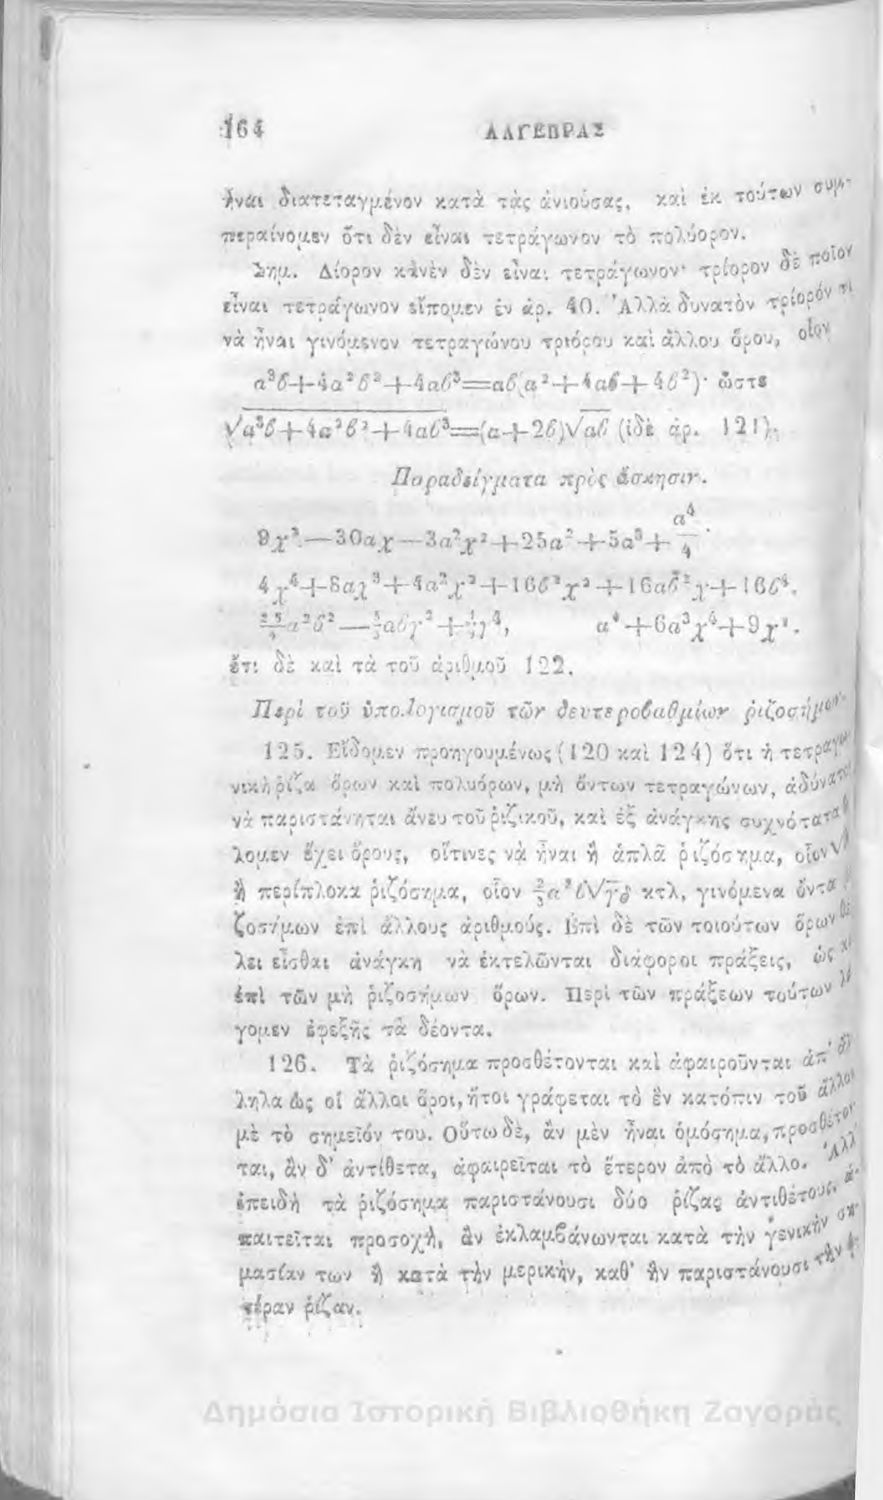 164 ΑΛΓΕΒΡΑΣ
ἦναι διατεταγμένον κατὰ τὰς ἀνιούσας, καὶ ἐκ τούτων συμ-
περαίνομεν ὅτι δὲν εἶναι τετράγωνον τὸ πολύορον.
Σημ. Δίορον κἀνὲν δὲν εἶναι τετράγωνον· τρίορον δὲ ποῖον
εἶναι τετράγωνον εἴπομεν ἐν ἀρ. 40. Ἀλλὰ δυνατὸν τρίορόν τι
νὰ ἦναι γινόμενον τετραγώνου τριόρου καὶ ἄλλου ὅρου, οἷον
α³β+4α²β²+4αβ³=αβ(α²+4αβ+4β²)· ὥστε
√α³β+4α²β²+4αβ³=(α+2β)√αβ (ἰδὲ ἀρ. 121).
Παραδείγματα πρὸς ἄσκησιν.
9χ².—30αχ—3α²χ²+25α²+5α³+α⁴/4.
4χ⁴+8αχ³+4α²χ²+16β²χ²+16αβ²χ+16β⁴.
α²β²—αβγ²+γ⁴, α⁴+6α³χ⁴+9χ².
ἔτι δὲ καὶ τὰ τοῦ ἀριθμοῦ 122.
Περὶ τοῦ ὑπολογισμοῦ τῶν δευτεροβαθμίων ῥιζοσήμων.
125. Εἴδομεν προηγουμένως (120 καὶ 124) ὅτι ἡ τετραγω-
νικὴ ῥίζα ὅρων καὶ πολυόρων, μὴ ὄντων τετραγώνων, ἀδύνατον
νὰ παριστάνηται ἄνευ τοῦ ῥιζικοῦ, καὶ ἐξ ἀνάγκης συχνότατα
λομεν ἔχει ὅρους, οἵτινες νὰ ἦναι ἢ ἁπλᾶ ῥιζόσημα, οἷον √
ἢ περίπλοκα ῥιζόσημα, οἷον ⅔α²β√γδ κτλ, γινόμενα ὄντα
ζοσήμων ἐπὶ ἄλλους ἀριθμούς. Ἐπὶ δὲ τῶν τοιούτων ὅρων
λει εἶσθαι ἀνάγκη νὰ ἐκτελῶνται διάφοροι πράξεις, ὡς
ἐπὶ τῶν μὴ ῥιζοσήμων ὅρων. Περὶ τῶν πράξεων τούτων λέ
γομεν ἐφεξῆς τὰ δέοντα.
126. Τὰ ῥιζόσημα προσθέτονται καὶ ἀφαιροῦνται ἀπ'
ληλα ὡς οἱ ἄλλοι ὅροι, ἤτοι γράφεται τὸ ἓν κατόπιν τοῦ ἄλλου
μὲ τὸ σημεῖόν του. Οὕτω δὲ, ἂν μὲν ἦναι ὁμόσημα, προσθέτον
ται, ἂν δ' ἀντίθετα, ἀφαιρεῖται τὸ ἕτερον ἀπὸ τὸ ἄλλο. Ἀλλ'
ἐπειδὴ τὰ ῥιζόσημα παριστάνουσι δύο ῥίζας ἀντιθέτους, ἀ-
παιτεῖται προσοχὴ, ἂν ἐκλαμβάνωνται κατὰ τὴν γενικὴν ση-
μασίαν των ἢ κατὰ τὴν μερικὴν, καθ' ἣν παριστάνουσι τὴν ἑ-
τέραν ῥίζαν.
Δημόσια Ιστορική Βιβλιοθήκη Ζαγοράς